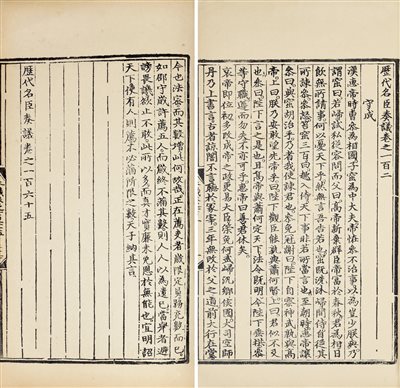 歷代名臣奏議卷之一百二
守成
漢惠帝時曹參為相國子窋為中大夫帝怪參不治事以為豈少朕與乃
謂窋曰若歸試私從容問而父曰高帝新棄羣臣帝富於春秋君為相日
飲無所請事何以憂天下乎然無言吾告若也窋既洗沐歸間侍自從其
所諫參參怒笞窋二百曰趣入侍天下事非若所當言也至朝時惠帝讓
參曰與窋胡治乎乃者我使諫君也參免冠謝曰陛下自察聖武孰與高
帝上曰朕乃安敢望先帝乎參曰陛下觀臣能孰與蕭何賢上曰君似不及
也參曰陛下言之是也且高帝與蕭何定天下法令既明今陛下垂拱參
等守職遵而勿失不亦可乎惠帝曰善君休矣
哀帝即位初多改成帝之政更易大臣策免何武歸氾鄉侯國大司空師
丹乃上書言古者諒闇不言聽於冢宰三年無改於父之道前大行在堂
令也法密而員數增此何故哉正在薦吏者歲限定員務充數而已
如郡守歲許薦五人而歲終不滿其數則人人以為遺己當舉者避
謗畏譏欲止不敢此所以多而真才實廉未免慁於無能也宜明詔
天下使有人則薦不必滿所限之數天子納其言
歷代名臣奏議卷之一百六十五